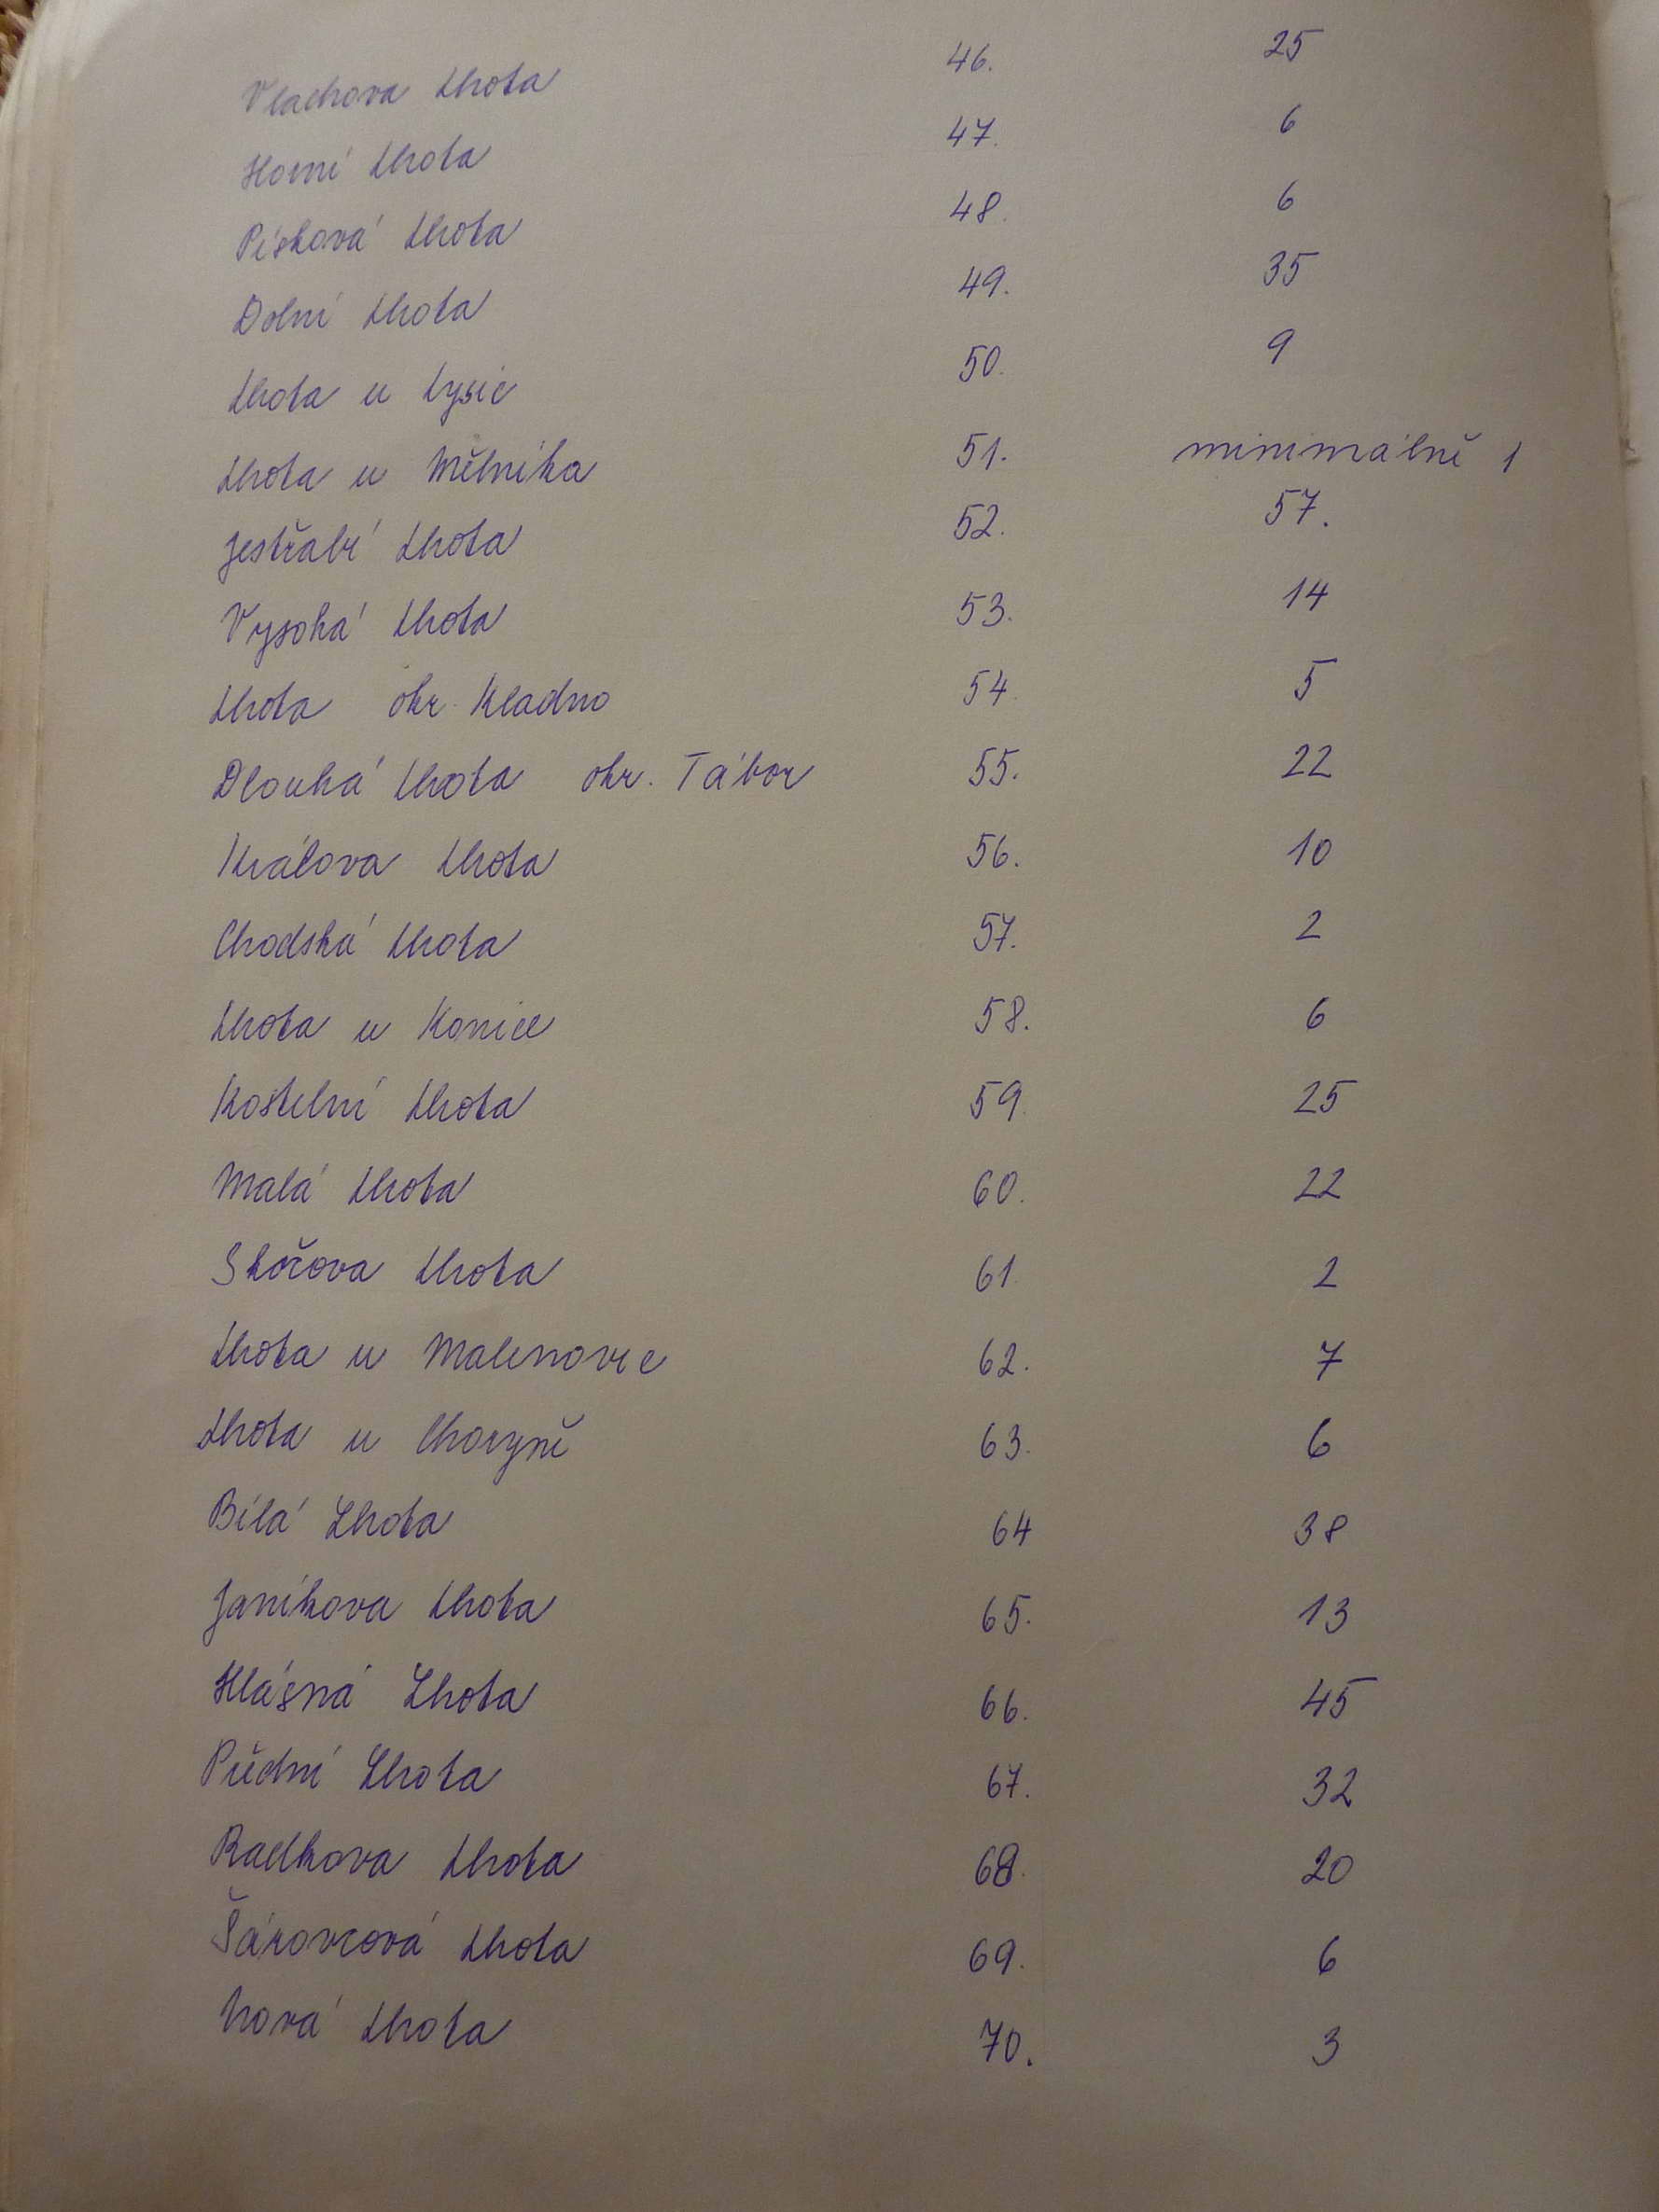 Vlachova Lhota 46. 25
Horní Lhota 47. 6
Písková Lhota 48. 6
Dolní Lhota 49. 35
Lhota u Lysic 50. 9
Lhota u Mělníka 51. minimálně 1
Jestřabí Lhota 52. 57.
Vysoká Lhota 53. 14
Lhota okr. Kladno 54 5
Dlouhá Lhota okr. Tábor 55. 22
Králova Lhota 56. 10
Chodská Lhota 57. 2
Lhota u Konice 58. 6
Kostelní Lhota 59. 25
Malá Lhota 60. 22
Skořova Lhota 61 2
Lhota u Malenovic 62. 7
Lhota u Choryně 63. 6
Bílá Lhota 64 38
Janíkova Lhota 65. 13
Hlásná Lhota 66. 45
Přední Lhota 67. 32
Radkova Lhota 68. 20
Šárovcová Lhota 69. 6
Nová Lhota 70. 3